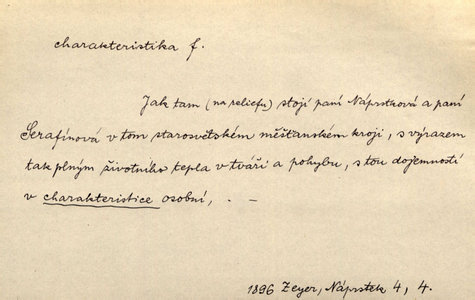 charakteristika f.
Jak tam (na reliefu) stojí paní Náprstková a paní
Serafínová v tom starosvětském měšťanském kroji, s výrazem
tak plným životního tepla v tváři a pohybu, s tou dojemností
v charakteristice osobní, . –
1896 Zeyer, Náprstek 4, 4.